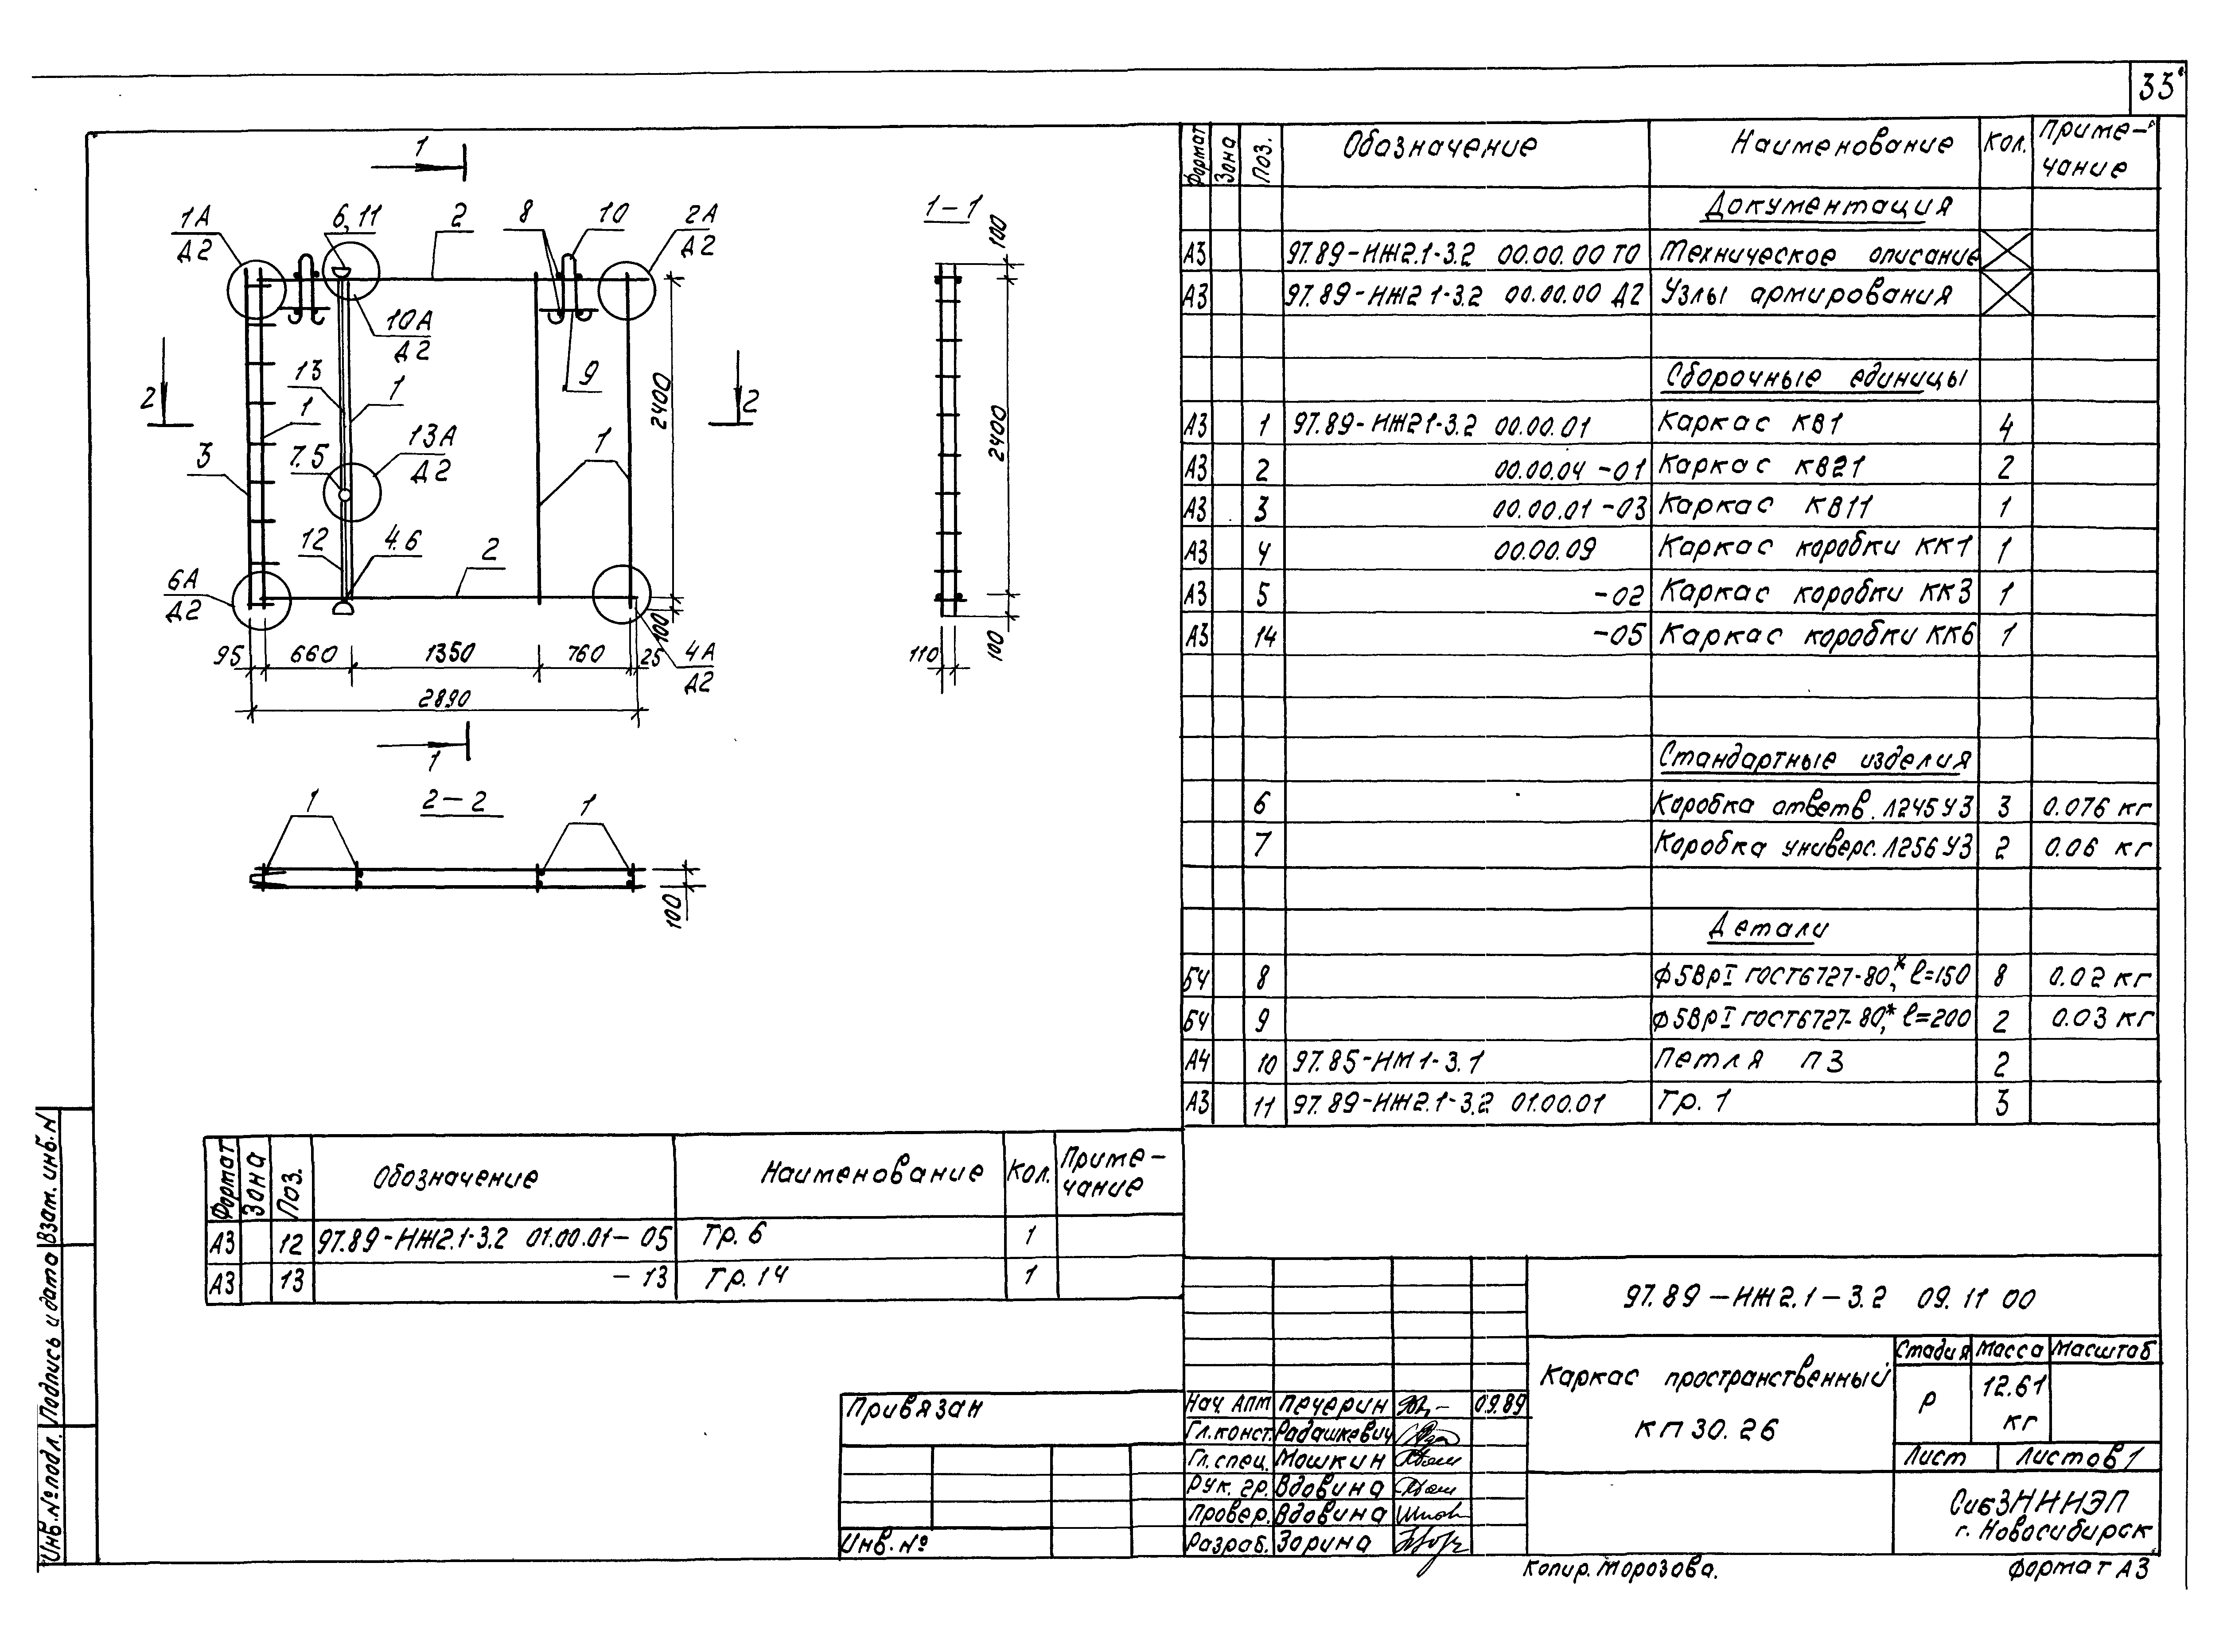 33
1
1А
Д2
6,11
2
8
10
2А
Д2
10А
Д2
13
1
9
2
2
2400
1
3
7.5
13А
Д2
1
12
4.6
2
6А
Д2
100
95
660
1350
760
25
4А
Д2
2890
1
1-1
100
2400
110
100
2-2
1
1
100
Формат
Зона
Поз.
Обозначение
Наименование
Кол.
Приме-
чание
Документация
А3 97.89-НЖ2.1-3.2 00.00.00 ТО Техническое описание
А3 97.89-НЖ2 1-3.2 00.00.00 Д2 Узлы армирования
Сборочные единицы
А3 1 97.89-НЖ2 1-3.2 00.00.01 Каркас КВ1 4
А3 2 00.00.04 -01 Каркас КВ21 2
А3 3 00.00.01 -03 Каркас КВ11 1
А3 4 00.00.09 Каркас коробки КК1 1
А3 5 -02 Каркас коробки КК3 1
А3 14 -05 Каркас коробки КК6 1
Стандартные изделия
6 Коробка ответв. Л245У3 3 0.076 кг
7 Коробка универс. Л256У3 2 0.06 кг
Детали
БЧ 8 ф5ВрI ГОСТ6727-80,* ℓ=150 8 0.02 кг
БЧ 9 ф5ВрI ГОСТ6727-80,* ℓ=200 2 0.03 кг
А4 10 97.85-НМ1-3.1 Петля П3 2
А3 11 97.89-НЖ2.1-3.2 01.00.01 Тр. 1 3
Формат
Зона
Поз.
Обозначение
Наименование
Кол.
Приме-
чание
А3 12 97.89-НЖ2.1-3.2 01.00.01-05 Тр. 6 1
А3 13 -13 Тр. 14 1
97.89-НЖ2.1-3.2 09.11 00
Каркас пространственный
КП 30.26
Стадия Масса Масштаб
Р
12.61
кг
Лист
Листов 1
СибЗНИИЭП
г. Новосибирск
Нач. АПМ Печерин 09.89
Гл.конст. Радашкевич
Гл.спец. Мошкин
Рук. гр. Вдовина
Провер. Вдовина
Разраб. Зорина
Привязан
Инв.№
Копир. Морозова.
Формат А3
Взам. инв.N
Подпись и дата
Инв.№ подл.